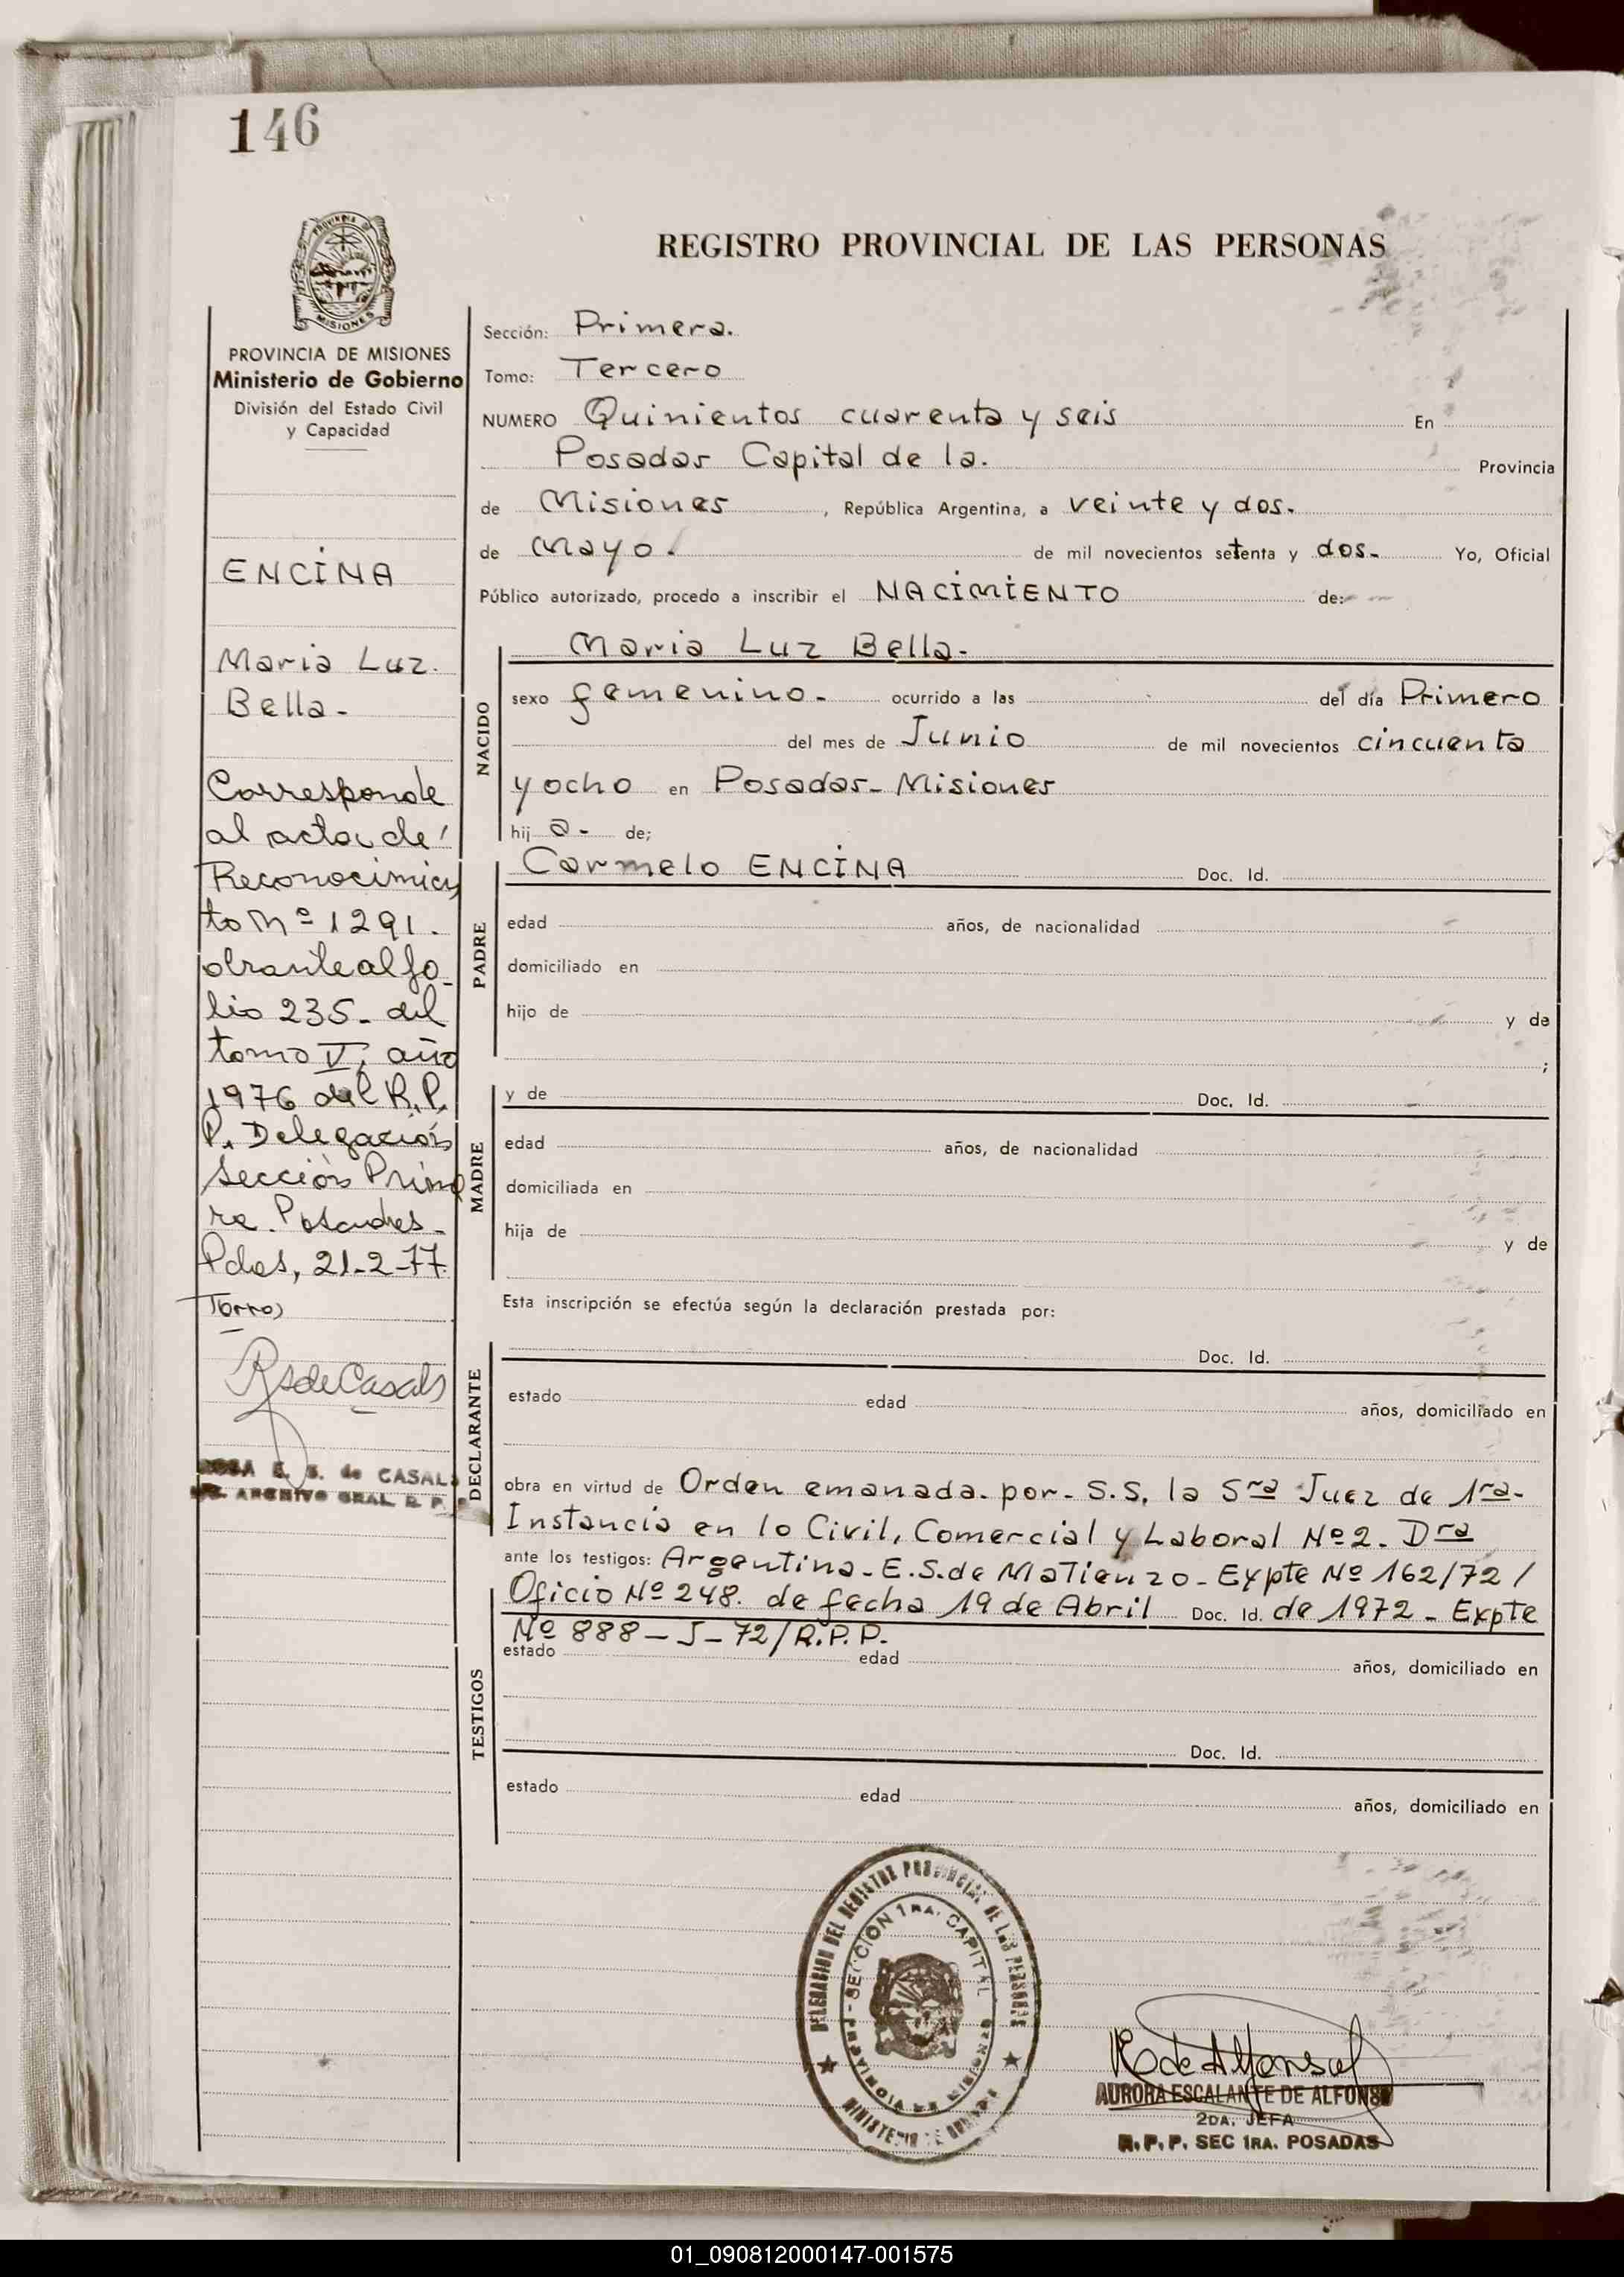 146
REGISTRO PROVINCIAL DE LAS PERSONAS
MISIONES
PROVINCIA DE MISIONES
Ministerio de Gobierno
División del Estado Civil
y Capacidad
ENCINA
Maria Luz.
Bella-
Corresponde
al acta de
Reconocimien
to Nº 1291.
obrante al fo_
lio 235_ del
tomo V, año
1976 del R.P.
P. Delegación
Sección Prime
ra Posadas_
Pdas, 21-2-77.
Torres
RSdeCasals
ROSA E. S. de CASALS
ARCHIVO GRAL. R. P. P.
Sección: Primera.
Tomo: Tercero
NUMERO Quinientos cuarenta y seis En
Posadas Capital de la. Provincia
de Misiones, República Argentina, a veinte y dos.
de Mayo. de mil novecientos setenta y dos- Yo, Oficial
Público autorizado, procedo a inscribir el NACIMIENTO de:
NACIDO
Maria Luz Bella-
sexo femenino- ocurrido a las del día Primero
del mes de Junio de mil novecientos cincuenta
y ocho en Posadas- Misiones
hij a- de;
PADRE
Carmelo ENCINA Doc. Id.
edad años, de nacionalidad
domiciliado en
hijo de y de
;
MADRE
y de Doc. Id.
edad años, de nacionalidad
domiciliada en
hija de y de
Esta inscripción se efectúa según la declaración prestada por:
DECLARANTE
Doc. Id.
estado edad años, domiciliado en
obra en virtud de Orden emanada. por- S.S, la Sra Juez de 1ra-
Instancia en lo Civil, Comercial y Laboral Nº2- Dra
ante los testigos: Argentina-E.S.de Matienzo-Expte Nº 162/72/
TESTIGOS
Oficio Nº 248. de fecha 19 de Abril Doc. Id. de 1972- Expte
Nº 888-J-72/R.P.P.
estado edad años, domiciliado en
Doc. Id.
estado edad años, domiciliado en
DELEGACION DEL REGISTRO PROVINCIAL DE LAS PERSONAS
SECCION 1RA. CAPITAL
PROVINCIA DE MISIONES
MINISTERIO DE GOBIERNO
AURORA ESCALANTE DE ALFONSO
2DA. JEFA
R.P.P. SEC 1RA. POSADAS
01_090812000147-001575